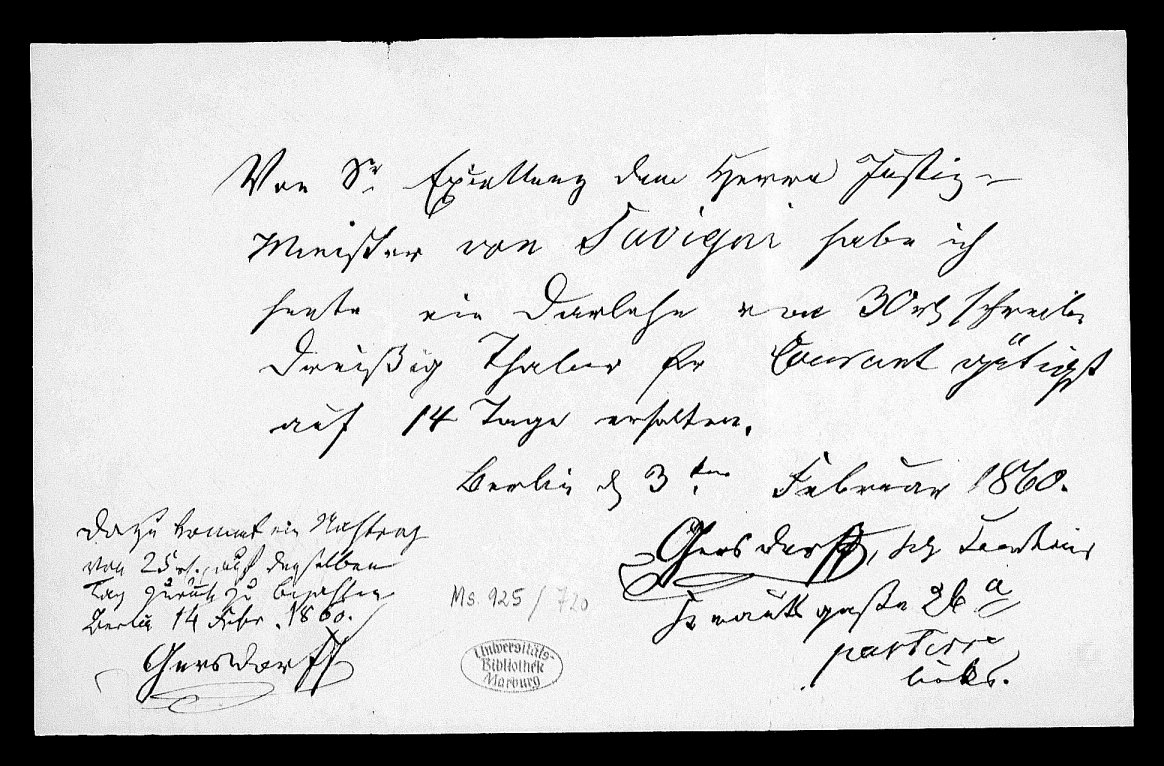 Von Sr Excellenz dem Herrn Justiz-
Minister von Savigni habe ich
heute ein Darlehn von 30 rt schreib.
Dreißig Thaler Pr Courant gütigst
auf 14 Tage erhalten.
Berlin d 3ten Februar 1860.
Gersdorff,
gaße 26 a
parterre
links.
Dazu kommt ein Nachtrag
von 25 rt. auf denselben
Tag zurück zu bezahlen
Berlin 14 Febr. 1860.
Gersdorff
Ms. 925/720
Universitäts-
Bibliothek
Marburg